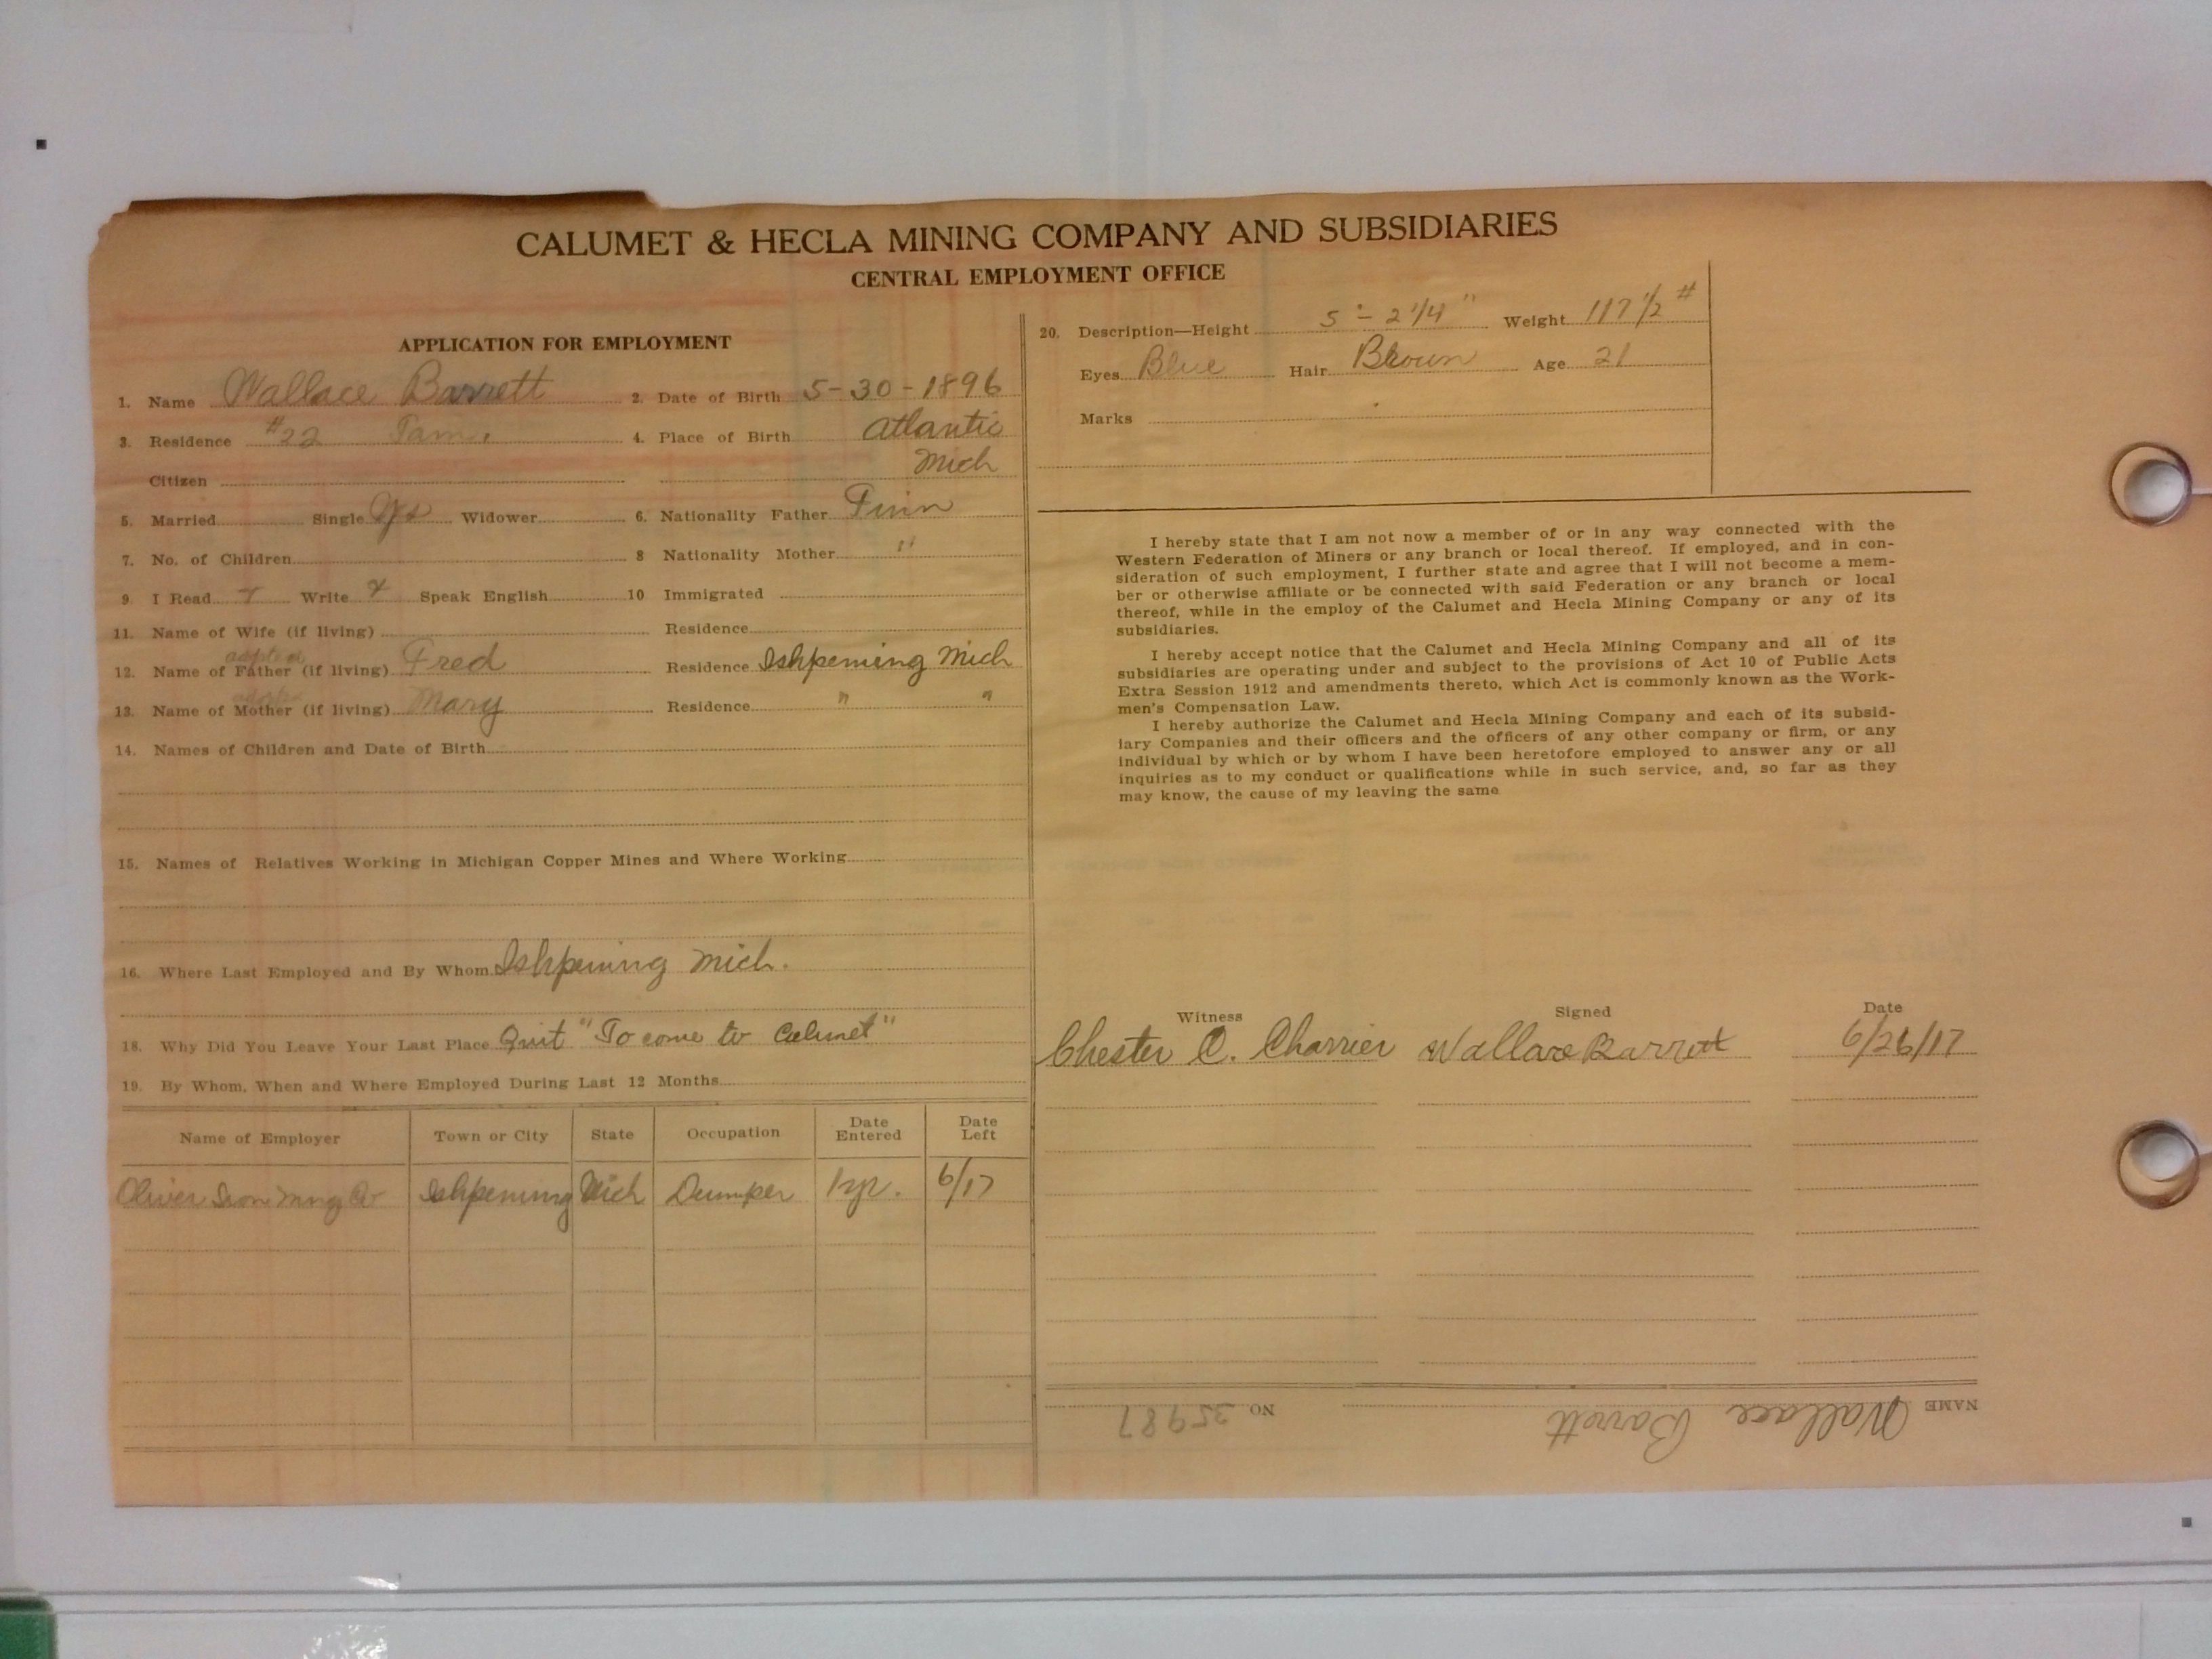 CALUMET & HECLA MINING COMPANY AND SUBSIDIARIES
CENTRAL EMPLOYMENT OFFICE
APPLICATION FOR EMPLOYMENT
1. Name Wallace Barrett 2. Date of Birth 5-30-1896
3. Residence #22 Tam. 4. Place of Birth Atlantic
Citizen Mich
5. Married Single Yes Widower 6. Nationality Father Finn
7. No. of Children 8 Nationality Mother "
9. I Read Write Speak English 10 Immigrated
11. Name of Wife (if living) Residence
adopted
12. Name of Father (if living) Fred Residence Ishpeming Mich
adopted
13. Name of Mother (if living) Mary Residence " "
14. Names of Children and Date of Birth
15. Names of Relatives Working in Michigan Copper Mines and Where Working
16. Where Last Employed and By Whom Ishpeming Mich.
18. Why Did You Leave Your Last Place Quit "To come to Calumet"
19. By Whom, When and Where Employed During Last 12 Months
Name of Employer Town or City State Occupation Date Entered Date Left
Oliver Iron Mng Co Ishpeming Mich Dumper 1 yr. 6/17
20. Description—Height 5'-2 1/4" Weight 117 1/2 #
Eyes Blue Hair Brown Age 21
Marks
I hereby state that I am not now a member of or in any way connected with the
Western Federation of Miners or any branch or local thereof. If employed, and in con-
sideration of such employment, I further state and agree that I will not become a mem-
ber or otherwise affiliate or be connected with said Federation or any branch or local
thereof, while in the employ of the Calumet and Hecla Mining Company or any of its
subsidiaries.
I hereby accept notice that the Calumet and Hecla Mining Company and all of its
subsidiaries are operating under and subject to the provisions of Act 10 of Public Acts
Extra Session 1912 and amendments thereto, which Act is commonly known as the Work-
men's Compensation Law.
I hereby authorize the Calumet and Hecla Mining Company and each of its subsid-
iary Companies and their officers and the officers of any other company or firm, or any
individual by which or by whom I have been heretofore employed to answer any or all
inquiries as to my conduct or qualifications while in such service, and, so far as they
may know, the cause of my leaving the same
Witness Signed Date
Chester C. Charrier Wallace Barrett 6/26/17
NAME Wallace Barrett NO 35987